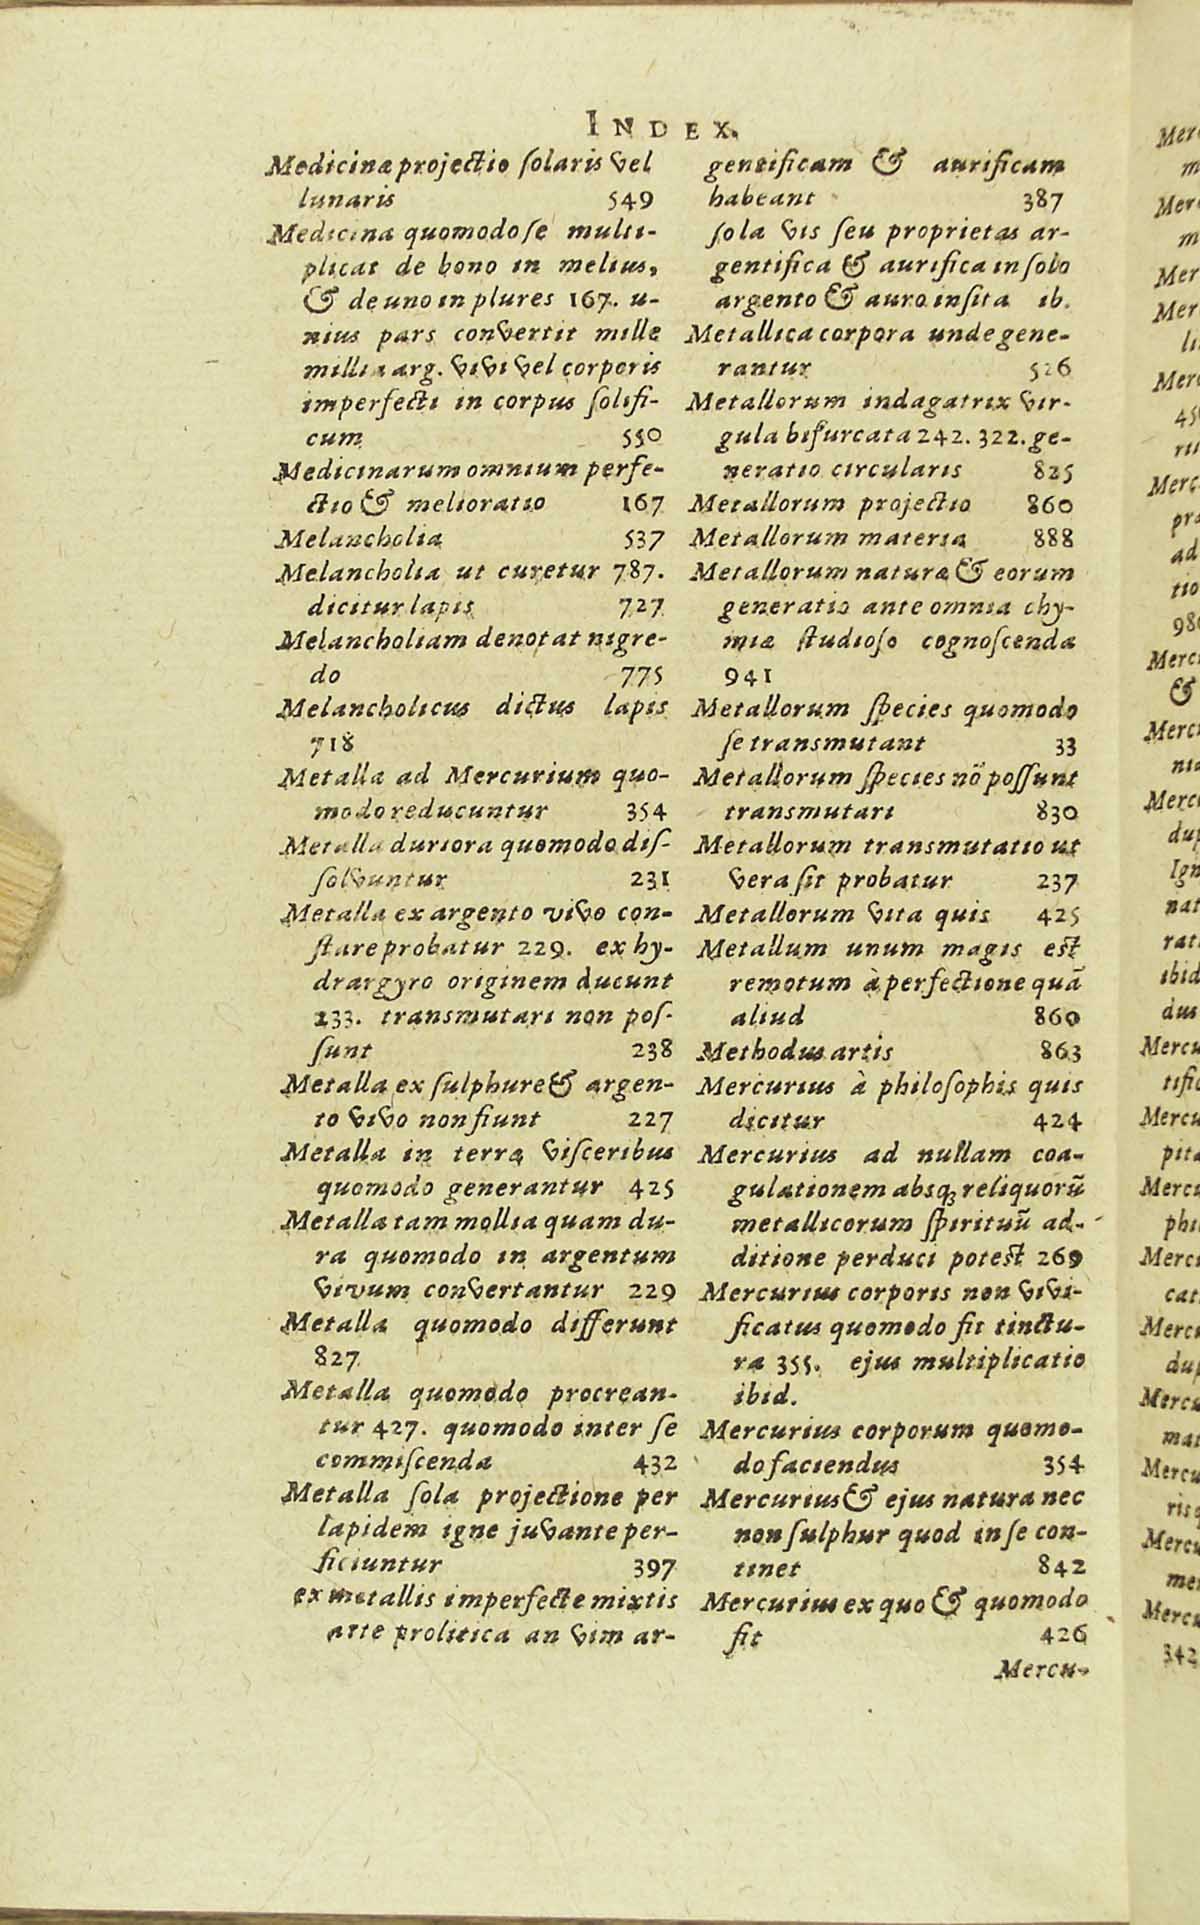 INDEX.
Medicinæ projectio ſolaris vel
lunaris 549
Medicina quomodo ſe multi-
plicat de bono in melius,
& de uno in plures 167. u-
nius pars convertit mille
millia arg. vivi vel corporis
imperfecti in corpus ſolifi-
cum 550
Medicinarum omnium perfe-
ctio & melioratio 167
Melancholia 537
Melancholia ut curetur 787.
dicitur lapis 727
Melancholiam denotat nigre-
do 775
Melancholicus dictus lapis
718
Metalla ad Mercurium quo-
modo reducuntur 354
Metalla duriora quomodo diſ-
ſolvuntur 231
Metalla ex argento vivo con-
ſtare probatur 229. ex hy-
drargyro originem ducunt
233. transmutari non poſ-
ſunt 238
Metalla ex ſulphure & argen-
to vivo non fiunt 227
Metalla in terræ viſceribus
quomodo generantur 425
Metalla tam mollia quam du-
ra quomodo in argentum
vivum convertantur 229
Metalla quomodo differunt
827
Metalla quomodo procrean-
tur 427. quomodo inter ſe
commiſcenda 432
Metalla ſola projectione per
lapidem igne juvante per-
ficiuntur 397
ex metallis imperfecte mixtis
arte prolitica an vim ar-
gentificam & aurificam
habeant 387
ſola vis ſeu proprietas ar-
gentifica & aurifica in ſolo
argento & auro inſita ib.
Metallica corpora unde gene-
rantur 526
Metallorum indagatrix vir-
gula bifurcata 242. 322. ge-
neratio circularis 825
Metallorum projectio 860
Metallorum materia 888
Metallorum naturæ & eorum
generatio ante omnia chy-
miæ ſtudioſo cognoſcenda
941
Metallorum ſpecies quomodo
ſe transmutant 33
Metallorum ſpecies nõ poſſunt
transmutari 830
Metallorum transmutatio ut
vera ſit probatur 237
Metallorum vita quis 425
Metallum unum magis eſt
remotum à perfectione quã
aliud 860
Methodus artis 863
Mercurius à philoſophis quis
dicitur 424
Mercurius ad nullam coa-
gulationem absq; reliquorũ
metallicorum ſpirituũ ad-
ditione perduci poteſt 269
Mercurius corporis non vivi-
ficatus quomodo fit tinctu-
ra 355. ejus multiplicatio
ibid.
Mercurius corporum quomo-
do faciendus 354
Mercurius & ejus natura nec
non ſulphur quod in ſe con-
tinet 842
Mercurius ex quo & quomodo
fit 426
Mercu-